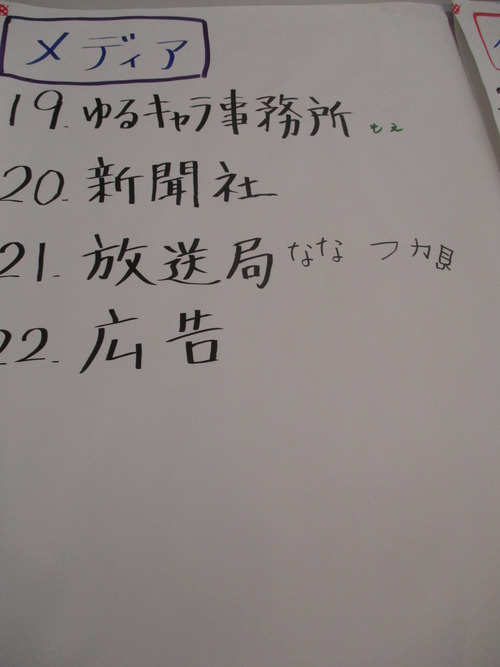 メディア
19. ゆるキャラ事務所 もえ
20. 新聞社
21. 放送局 なな
22. 広告